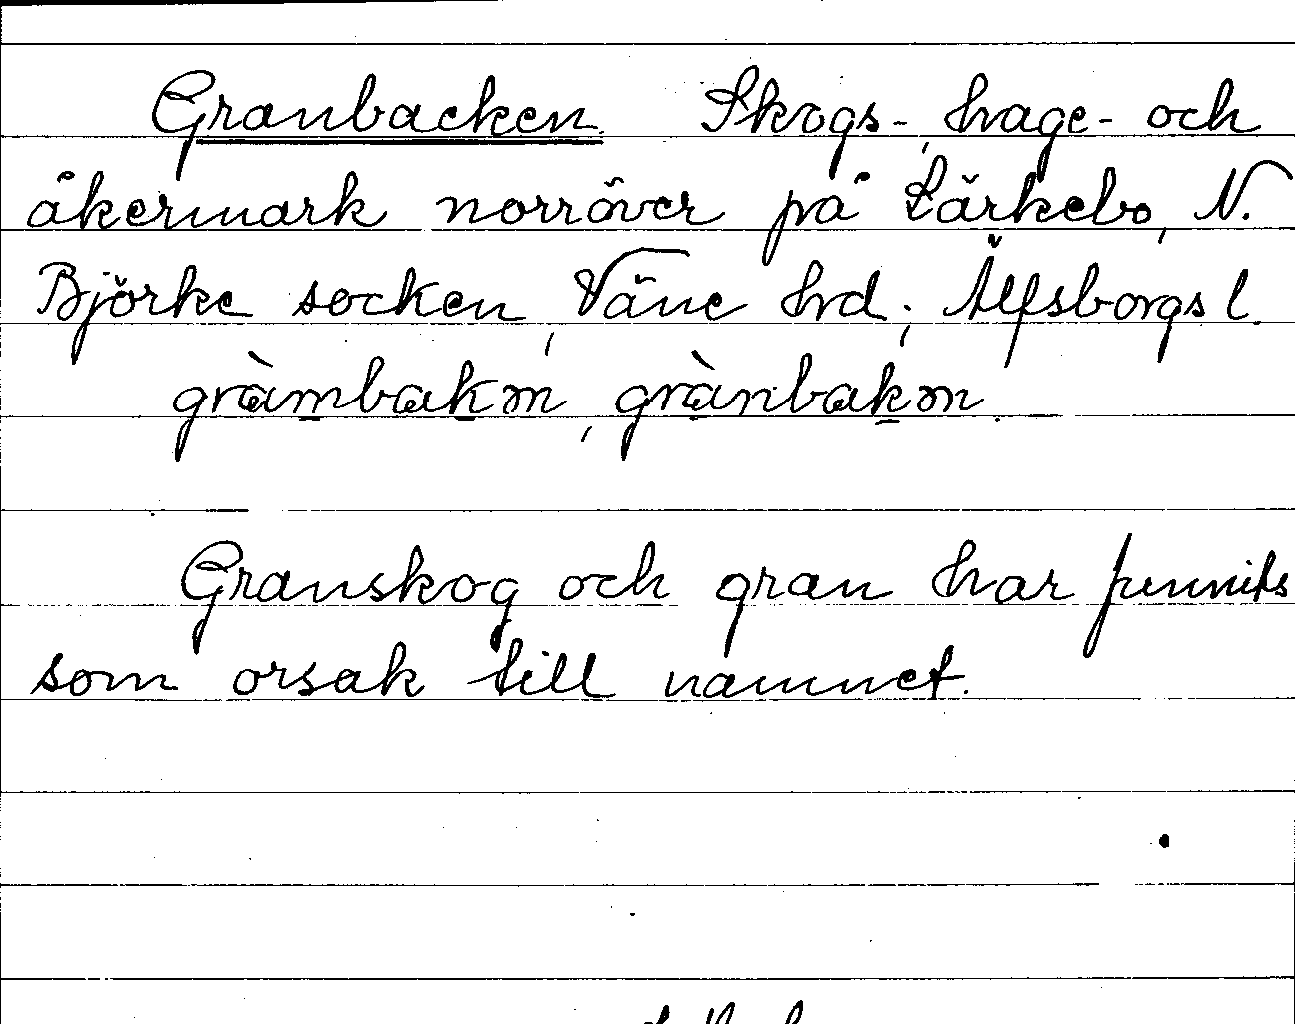 Granbacken. Skogs-, hage- och
åkermark norröver på Lärkebo, N.
Björke socken, Väne hrd; Älfsborgs l.
gràmbakm, grànbakm.
Granskog och gran har funnits
som orsak till namnet.